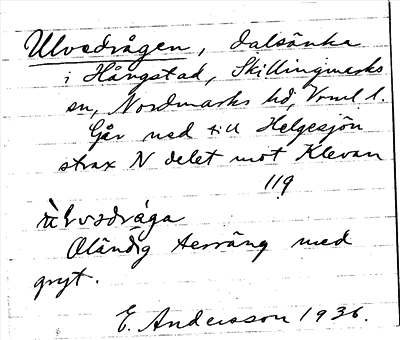 Ulvedrågen, dalsänka
i Hångstad, Skillingmarks
sn, Nordmarks hd, Vrml l.
Går ned till Helgesjön
strax N delet mot Klevan
119
ùlvədråga
Oländig terräng med
gryt.
E. Andersson 1936.